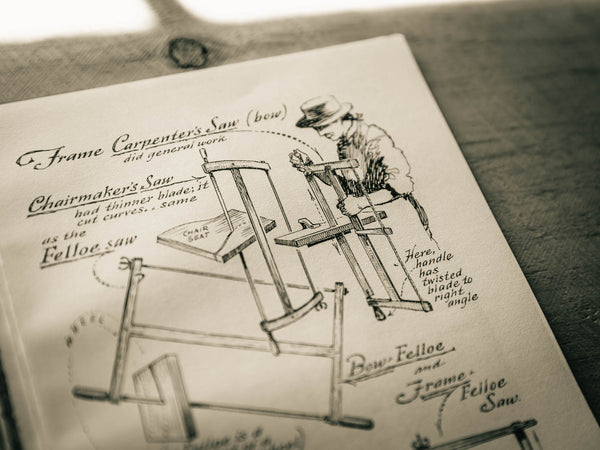 Frame Carpenter's Saw (bow)
did general work
Chairmaker's Saw
had thinner blade; it
cut curves.. same
as the
Felloe saw
CHAIR
SEAT
Here,
handle
has
twisted
blade to
right
angle
Bow-Felloe
and
Frame-Felloe
Saw.